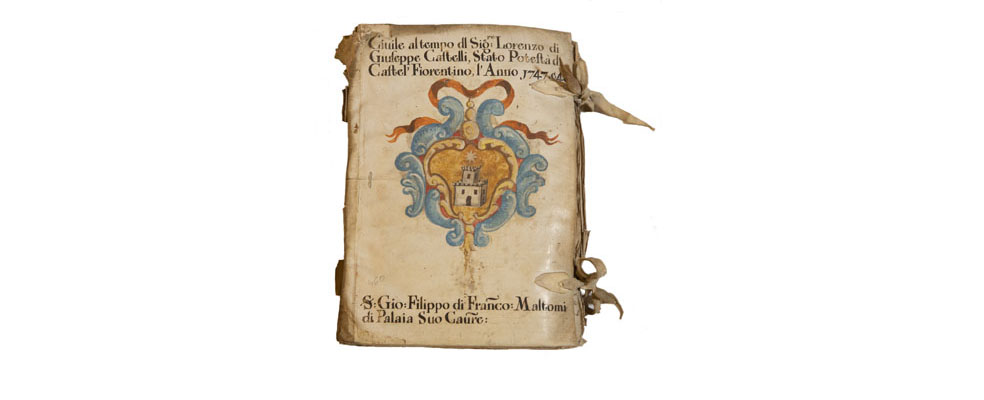 Ciuile al tempo dl Sig:re Lorenzo di
Giuseppe Castelli, Stato Potestà di
Castel' Fiorentino, l'Anno 1747
S: Gio: Filippo di Franco: Maltomi
di Palaia Suo Caure: